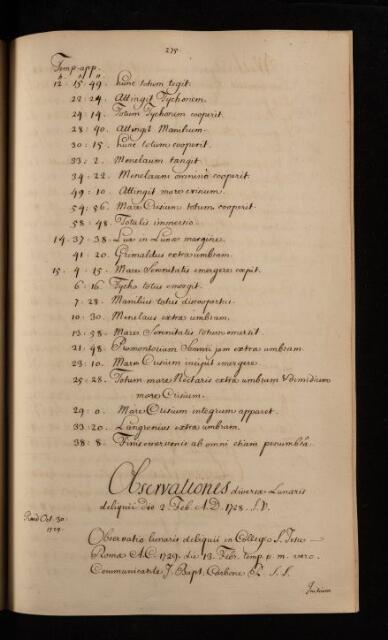 275
Temp. app.
h. ' "
12 : 15 : 49. hunc totum tegit.
22 : 24. Attingit Tychonem.
24 : 14. Totum Tychonem cooperit.
28 : 40. Attingit Manilium.
30 : 15. hunc totum cooperit.
33 : 2. Menelaum tangit.
34 : 22. Menelaum omnino cooperit.
49 : 10. Attingit mare crisium.
54 : 56. Mare Crisium totum cooperit.
58 : 48. Totalis immersio.
14 : 37 : 38. Lux in Lunæ margine.
41 : 20. Grimaldus extra umbram.
15 : 4 : 15. Mare Serenitatis emergere cæpit.
6 : 16. Tycho totus emergit.
7 : 28. Manilius totus discoopertus.
10 : 30. Menelaus extra umbram.
13 : 58. Mare Serenitatis totum emersit.
21 : 48. Promontorium Somnii jam extra umbram.
23 : 10. Mare Crisium incipit emergere.
25 : 28. Totum mare Nectaris extra umbram & dimidium
mare Crisium.
29 : 0. Mare Crisium integrum apparet.
33 : 20. Langrenus extra umbram.
38 : 8. Finis emersionis ab omni etiam penumbrâ.
Observationes diversæ Lunaris
deliquii die 2 Feb. A.D. 1728. S.V.
Read Oct. 30.
1729.
Observatio lunaris deliquii in Collegio S. Jesu
Romæ A.C. 1729. die 13. Febr. temp. p. m. vero.
Communicante J. Bapt. Carbone S. S.
Initium